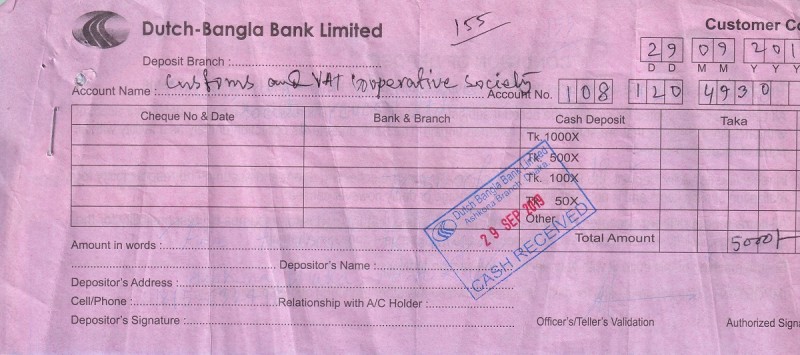 155
Dutch-Bangla Bank Limited
Customer Co
Deposit Branch :
29 09 201
D D M M Y Y Y
Account Name : Customs and VAT Cooperative Society
Account No. 108 120 4930
Cheque No & Date Bank & Branch Cash Deposit Taka
Tk.1000X
Tk. 500X
Tk. 100X
50X
Other
Dutch Bangla Bank Limited
Ashkona Branch, Dhaka
29 SEP 2019
CASH RECEIVED
Amount in words :
Total Amount 5000/-
Depositor's Name :
Depositor's Address :
Cell/Phone : Relationship with A/C Holder :
Depositor's Signature :
Officer's/Teller's Validation
Authorized Sign